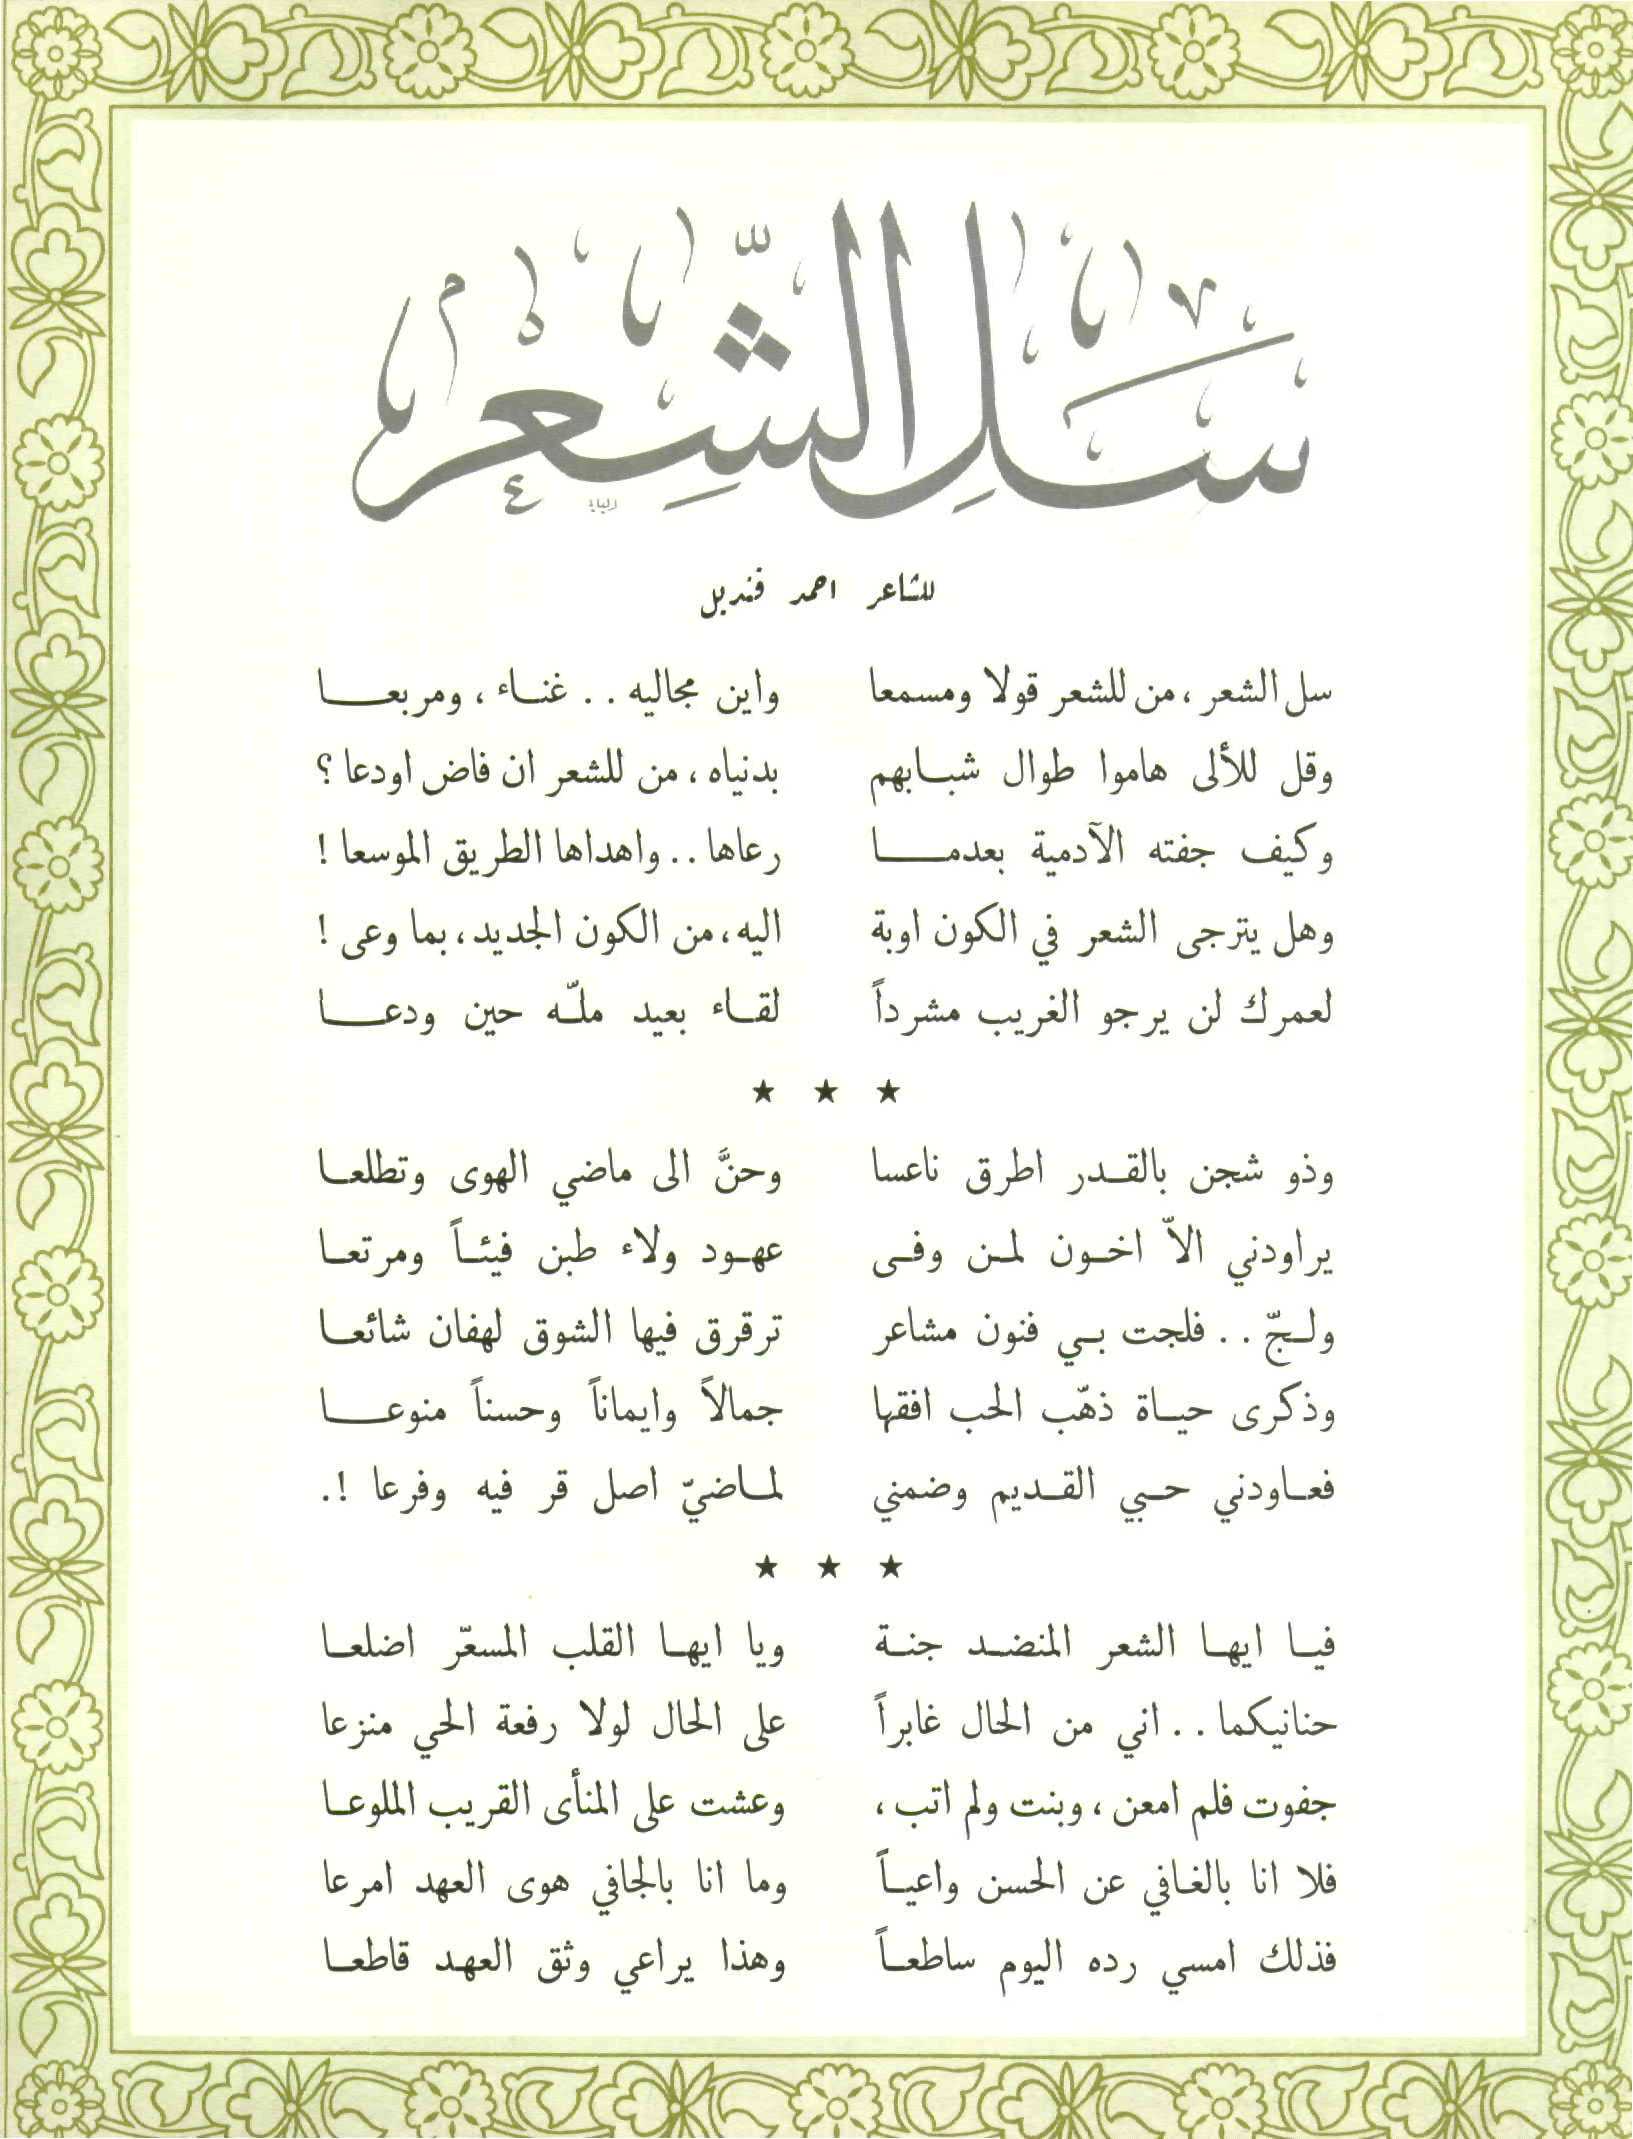 سل الشعر
للشاعر احمد قنديل
سل الشعر ، من للشعر قولا ومسمعا واين مجاليه . . غناء ، ومربعا
وقل للألى هاموا طوال شبابهم بدنياه ، من للشعر ان فاض اودعا ؟
وكيف جفته الآدمية بعدما رعاها . . واهداها الطريق الموسعا !
وهل يترجى الشعر في الكون اوبة اليه ، من الكون الجديد ، بما وعى !
لعمرك لن يرجو الغريب مشرداً لقاء بعيد ملّه حين ودعا
★ ★ ★
وذو شجن بالقدر اطرق ناعسا وحنَّ الى ماضي الهوى وتطلعا
يراودني الاّ اخون لمن وفى عهود ولاء طبن فيئاً ومرتعا
ولجّ . . فلجت بي فنون مشاعر ترقرق فيها الشوق لهفان شائعا
وذكرى حياة ذهّب الحب افقها جمالاً وايماناً وحسناً منوعا
فعاودني حبي القديم وضمني لماضيّ اصل قر فيه وفرعا !.
★ ★ ★
فيا ايها الشعر المنضد جنة ويا ايها القلب المسعّر اضلعا
حنانيكما . . اني من الحال غابراً على الحال لولا رفعة الحي منزعا
جفوت فلم امعن ، وبنت ولم اتب ، وعشت على المنأى القريب الملوعا
فلا انا بالغافي عن الحسن واعياً وما انا بالجافي هوى العهد امرعا
فذلك امسي رده اليوم ساطعاً وهذا يراعي وثق العهد قاطعا